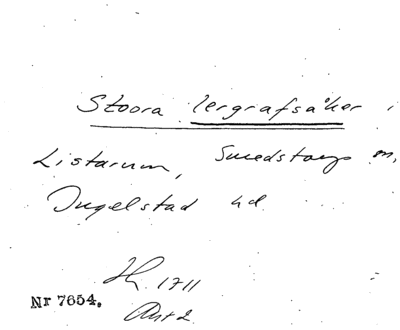 Stoora lergrafsåker i
Listarum, Smedstorps sn,
Ingelstad hd
1711
Akt 2
Nr 7654.